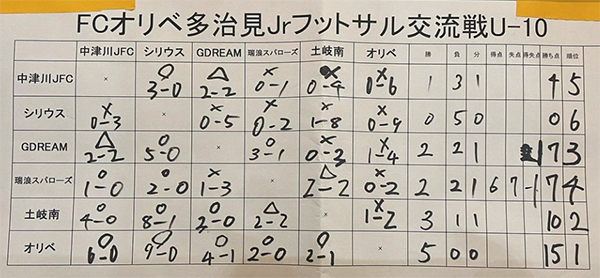 FCオリベ多治見Jrフットサル交流戦U-10
中津川JFC シリウス GDREAM 瑞浪スパローズ 土岐南 オリベ 勝 負 分 得点 失点 得失点 勝ち点 順位
中津川JFC × ○ 3-0 △ 2-2 × 0-1 × 0-4 × 0-6 1 3 1 4 5
シリウス × 0-3 × × 0-5 × 0-2 × 1-8 × 0-9 0 5 0 0 6
GDREAM △ 2-2 ○ 5-0 × ○ 3-1 × 0-3 × 1-4 2 2 1 1 7 3
瑞浪スパローズ ○ 1-0 ○ 2-0 × 1-3 × △ 2-2 × 0-2 2 2 1 6 7 -1 7 4
土岐南 ○ 4-0 ○ 8-1 ○ 3-0 △ 2-2 × × 1-2 3 1 1 10 2
オリベ ○ 6-0 ○ 9-0 ○ 4-1 ○ 2-0 ○ 2-1 × 5 0 0 15 1